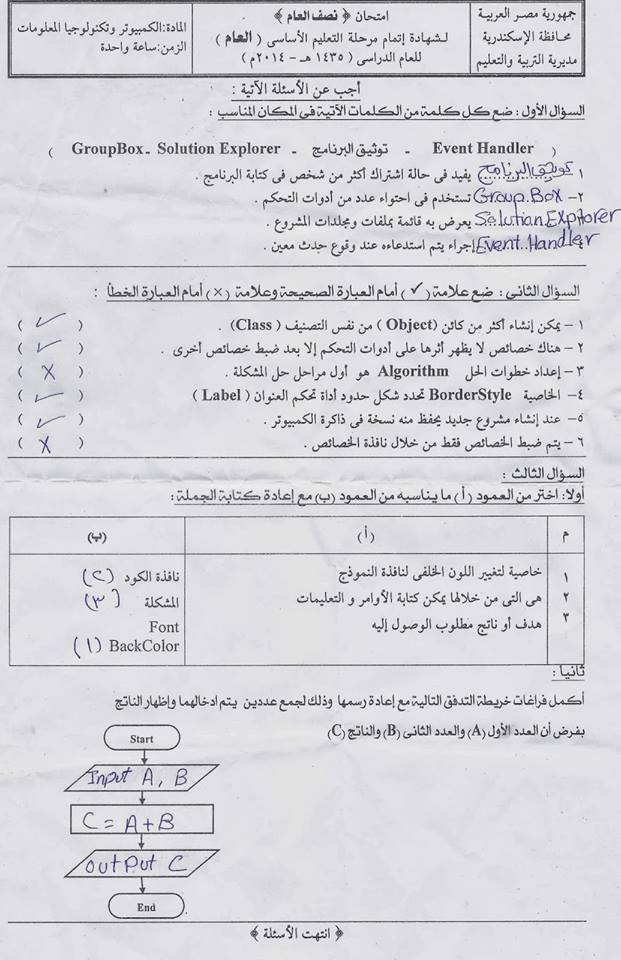 جمهورية مصر العربية
محافظة الإسكندرية
مديرية التربية والتعليم
امتحان ﴿ نصف العام ﴾
لشهادة إتمام مرحلة التعليم الأساسى ( العام )
للعام الدراسى ( ١٤٣٥ هـ - ٢٠١٤م )
المادة:الكمبيوتر وتكنولوجيا المعلومات
الزمن:ساعة واحدة
أجب عن الأسئلة الآتية :
السؤال الأول : ضع كل كلمة من الكلمات الآتية فى المكان المناسب :
( Event Handler - توثيق البرنامج - GroupBox - Solution Explorer )
١ توثيق البرنامج يفيد فى حالة اشتراك أكثر من شخص فى كتابة البرنامج .
٢- Group.Box تستخدم فى احتواء عدد من أدوات التحكم .
Solution Explorer يعرض به قائمة بملفات ومجلدات المشروع .
Event..Handler إجراء يتم استدعاءه عند وقوع حدث معين .
السؤال الثانى : ضع علامة (✓) أمام العبارة الصحيحة وعلامة (×) أمام العبارة الخطأ :
١ - يمكن إنشاء أكثر من كائن (Object) من نفس التصنيف (Class) . ( ✓ )
٢ - هناك خصائص لا يظهر أثرها على أدوات التحكم إلا بعد ضبط خصائص أخرى . ( ✓ )
٣ - إعداد خطوات الحل Algorithm هو أول مراحل حل المشكلة . ( X )
٤- الخاصية BorderStyle تحدد شكل حدود أداة تحكم العنوان ( Label ) ( ✓ )
٥- عند إنشاء مشروع جديد يحفظ منه نسخة فى ذاكرة الكمبيوتر . ( ✓ )
٦ - يتم ضبط الخصائص فقط من خلال نافذة الخصائص . ( X )
السؤال الثالث :
أولا: اختر من العمود (أ) ما يناسبه من العمود (ب) مع إعادة كتابة الجملة :
م (أ) (ب)
١ خاصية لتغيير اللون الخلفى لنافذة النموذج نافذة الكود (٢)
٢ هى التى من خلالها يمكن كتابة الأوامر و التعليمات المشكلة (٣)
٣ هدف أو ناتج مطلوب الوصول إليه Font
BackColor (١)
ثانيا :
أكمل فراغات خريطة التدفق التالية مع إعادة رسمها وذلك لجمع عددين يتم ادخالهما وإظهار الناتج
بفرض أن العدد الأول (A) والعدد الثانى (B) والناتج (C)
Start
Input A, B
C = A+B
output C
End
﴿ انتهت الأسئلة ﴾